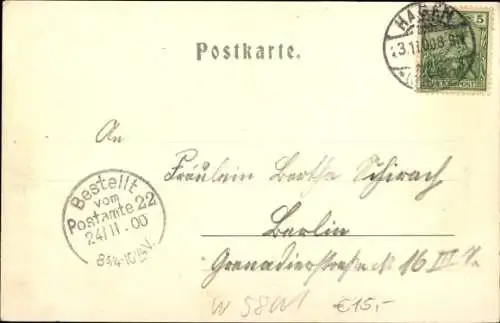 Postkarte.
HAGEN
5
An
Fräulein Bertha Schirach
Berlin
Grenadierstrasse No 16 III
Bestellt
vom
Postamte 22
24/11.00
8¾-10¼V.
€15,-